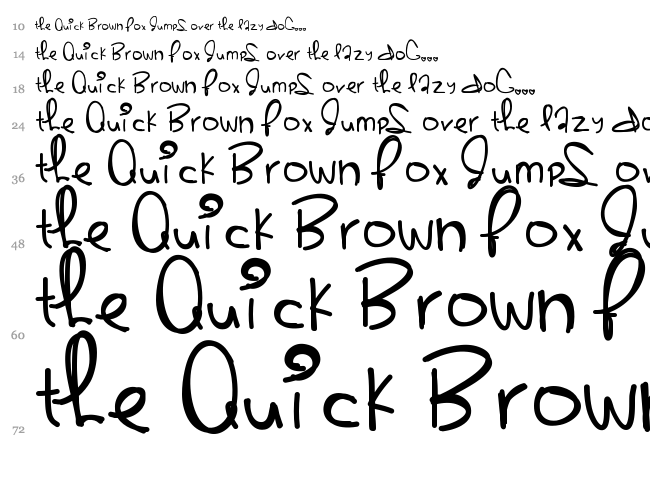 10 the Quick Brown fox Jumps over the lazy doG...
14 the Quick Brown fox Jumps over the lazy doG...
18 the Quick Brown fox Jumps over the lazy doG...
24 the Quick Brown fox Jumps over the lazy do
36 the Quick Brown fox Jumps ov
48 the Quick Brown fox Ju
60 the Quick Brown f
72 the Quick Brown